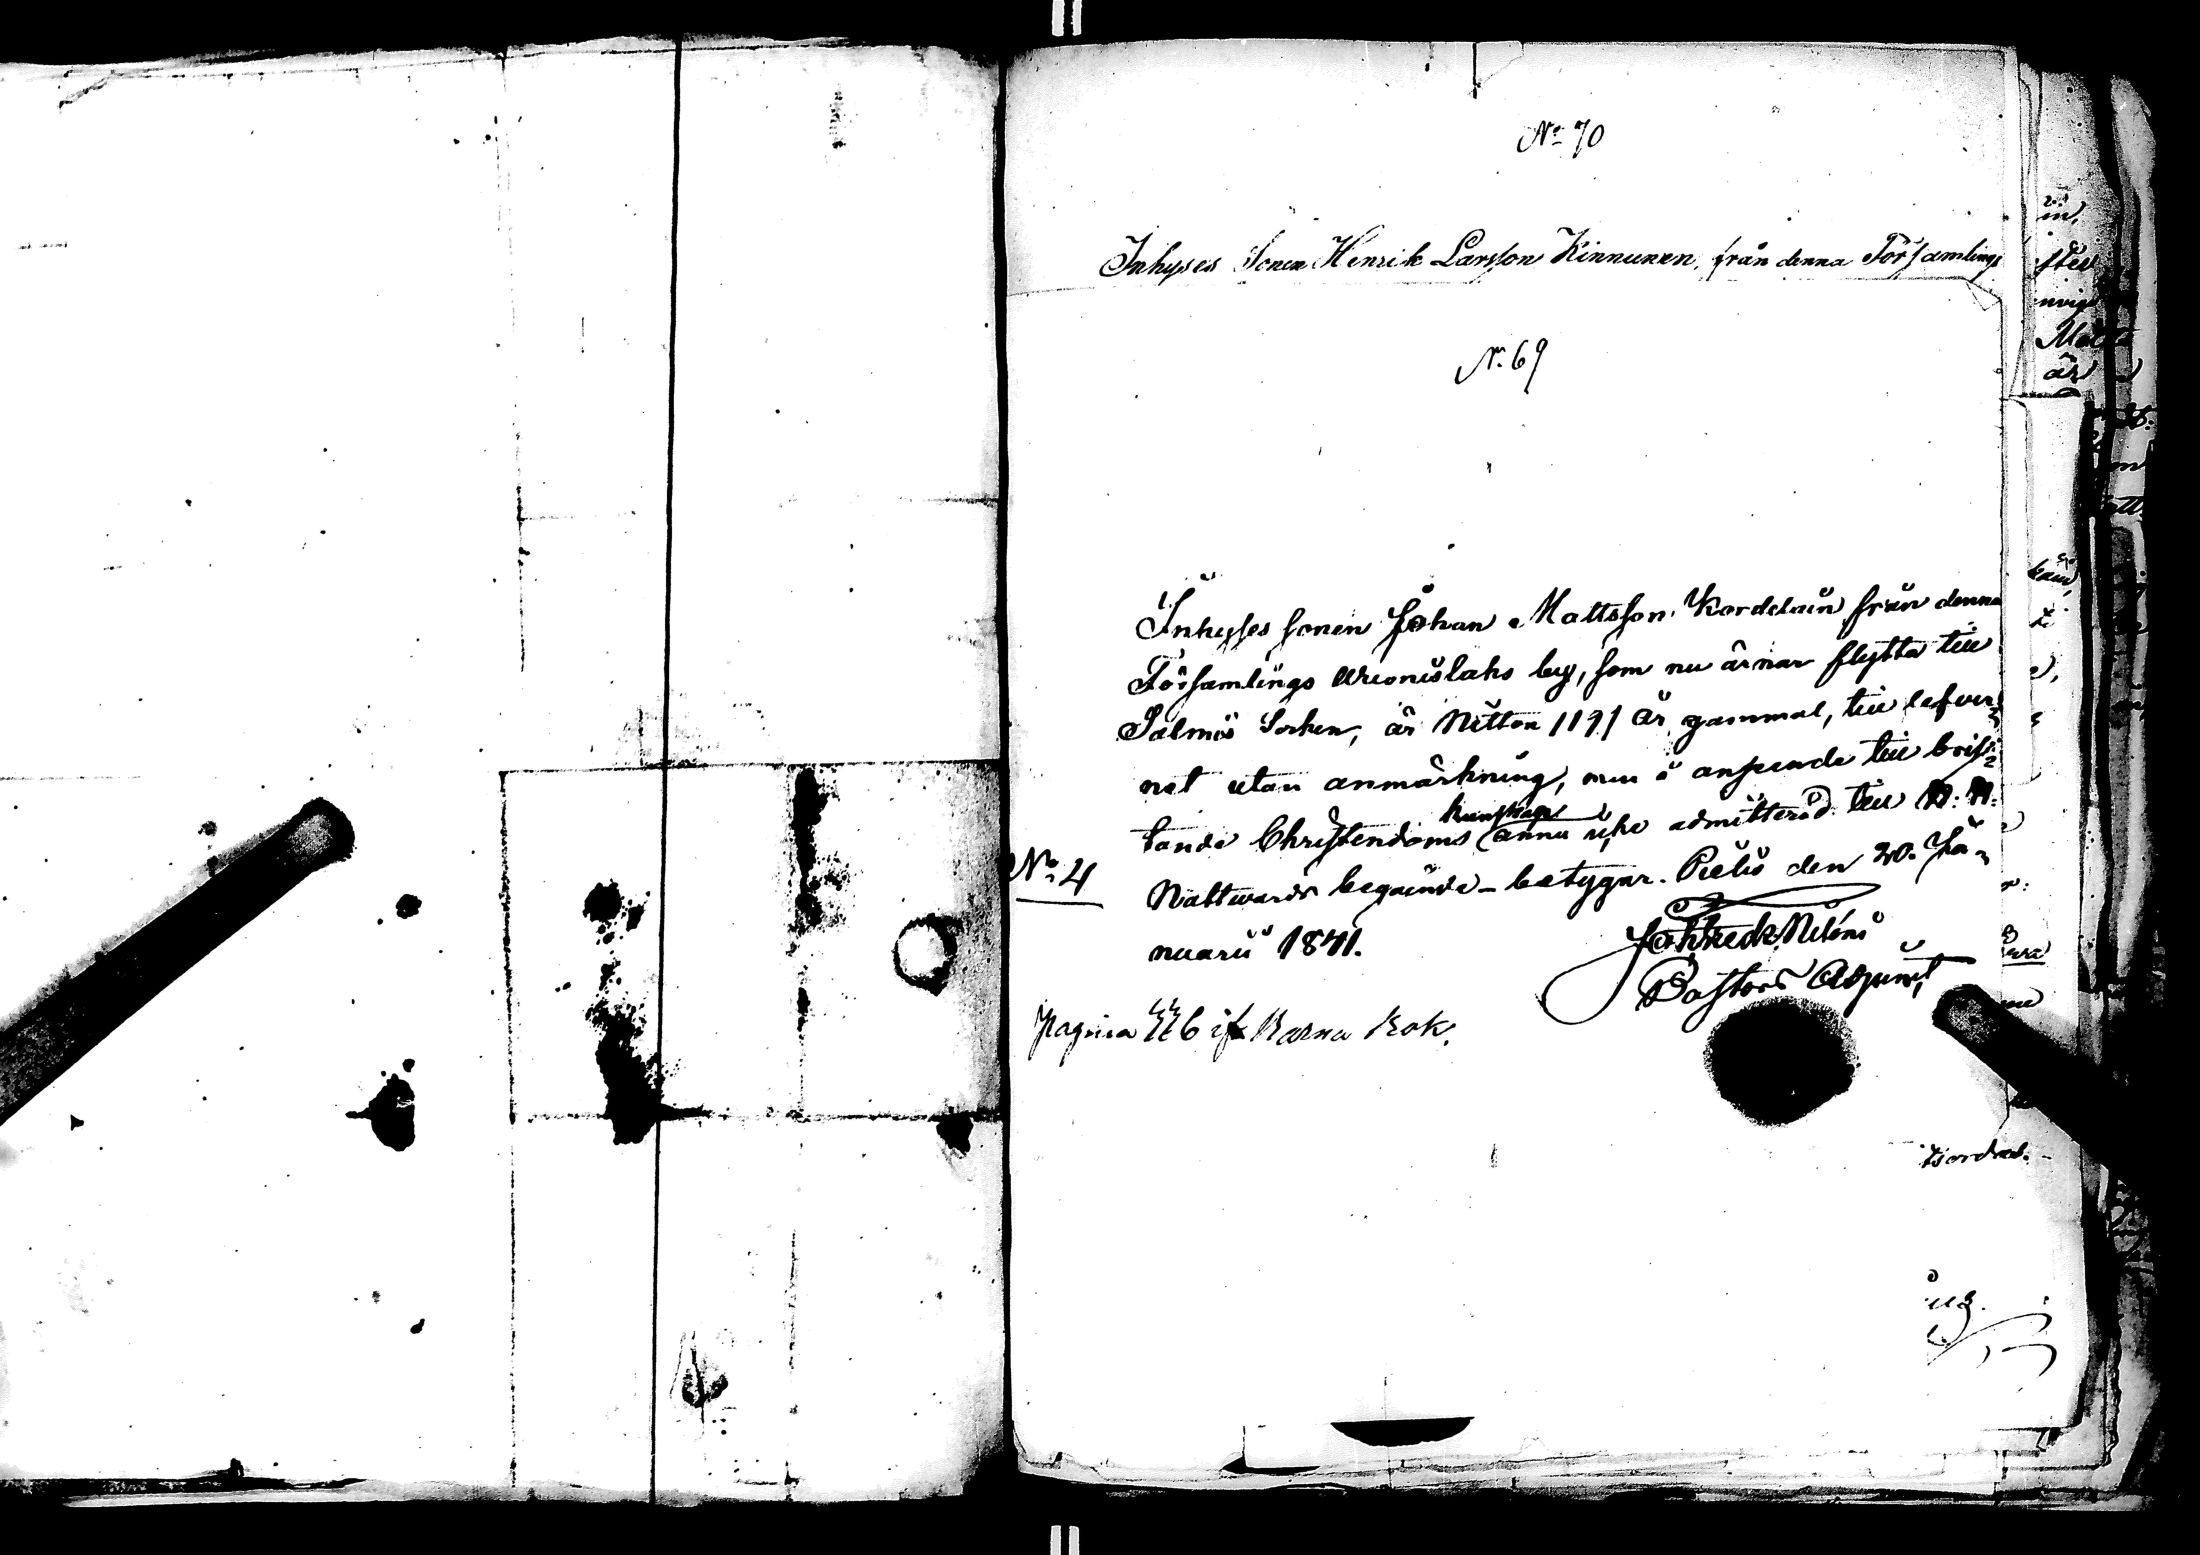 No 70
Inhyses Sonen Henrik Larsson Kinnunen, från denna Församlings
No 69
Inhysses sonen Johan Mattsson Kordelain från denna
Församlings Wuonislaks by, som nu ärnar flytta till
Salmis Socken, är Nitton /19/ år gammal, till lefver-
net utan anmärkning, men i anseende till bris-
tande Christendoms kunskap ännu icke admitterad till H. H.
No 4
Nattvards begående - betygar. Pielis den 20. Ja-
nuarii 1841.
Pastors Adjunct,
Pagina 776 i Barna Bok.